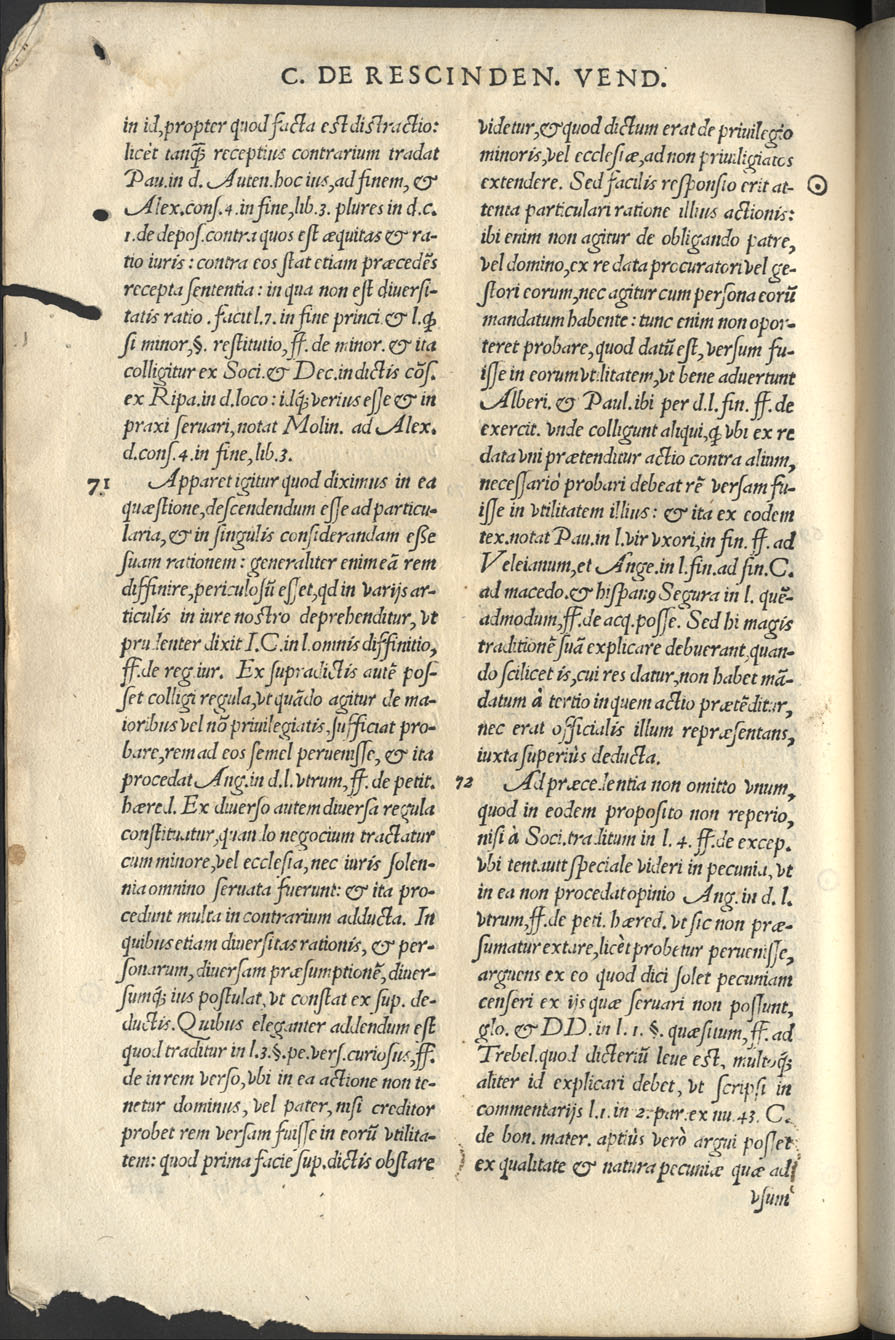 C. DE RESCINDEN. VEND.
in id, propter quod facta est distractio:
licèt tanq̃ receptius contrarium tradat
Pau. in d. Auten. hoc ius, ad finem, &
Alex. cons. 4. in fine, lib. 3. plures in d. c.
1. de depos. contra quos est æquitas & ra-
tio iuris: contra eos stat etiam præcedẽs
recepta sententia: in qua non est diuersi-
tatis ratio. facit l. 7. in fine princi. & l. ꝙ
si minor, §. restitutio, ff. de minor. & ita
colligitur ex Soci. & Dec. in dictis cõs.
ex Ripa. in d. loco: idq́; verius esse & in
praxi seruari, notat Molin. ad Alex.
d. cons. 4. in fine, lib. 3.
71 Apparet igitur quod diximus in ea
quæstione, descendendum esse ad particu-
laria, & in singulis considerandam eße
suam rationem: generaliter enim eã rem
diffinire, periculosũ esset, qd in varijs ar-
ticulis in iure nostro deprehenditur, vt
prudenter dixit I. C. in l. omnis diffinitio,
ff. de reg. iur. Ex supradictis autẽ pos-
set colligi regula, vt quãdo agitur de ma-
ioribus vel nõ priuilegiatis, sufficiat pro-
bare, rem ad eos semel peruenisse, & ita
procedat Ang. in d. l. vtrum, ff. de petit.
hæred. Ex diuerso autem diuersa regula
constituatur, quando negocium tractatur
cum minore, vel ecclesia, nec iuris solen-
nia omnino seruata fuerunt: & ita pro-
cedunt multa in contrarium adducta. In
quibus etiam diuersitas rationis, & per-
sonarum, diuersam præsumptionẽ, diuer-
sumq́; ius postulat, vt constat ex sup. de-
ductis. Quibus eleganter addendum est
quod traditur in l. 3. §. pe. vers. curiosus, ff.
de in rem verso, vbi in ea actione non te-
netur dominus, vel pater, nisi creditor
probet rem versam fuisse in eorũ vtilita-
tem: quod prima facie sup. dictis obstare
videtur, & quod dictum erat de priuilegio
minoris, vel ecclesiæ, ad non priuiligiatos
extendere. Sed facilis responsio erit at-
tenta particulari ratione illius actionis:
ibi enim non agitur de obligando patre,
vel domino, ex re data procuratori vel ge-
stori eorum, nec agitur cum persona eorũ
mandatum habente: tunc enim non opor-
teret probare, quod datũ est, versum fu-
isse in eorum vtilitatem, vt bene aduertunt
Alberi. & Paul. ibi per d. l. fin. ff. de
exercit. vnde colligunt aliqui, ꝙ vbi ex re
data vni prætenditur actio contra alium,
necessariò probari debeat rẽ versam fu-
isse in vtilitatem illius: & ita ex eodem
tex. notat Pau. in l. vir vxori, in fin. ff. ad
Veleianum, et Ange. in l. fin. ad fin. C.
ad macedo. & hispanꝰ Segura in l. quẽ-
admodum, ff. de acq. posse. Sed hi magis
traditionẽ suã explicare debuerant, quan-
do scilicet is, cui res datur, non habet mã-
datum à tertio in quem actio prætẽditur,
nec erat officialis illum repræsentans,
iuxta superiùs deducta.
72 Ad præcedentia non omitto vnum,
quod in eodem proposito non reperio,
nisi à Soci. traditum in l. 4. ff. de excep.
vbi tentauit speciale videri in pecunia, vt
in ea non procedat opinio Ang. in d. l.
vtrum, ff. de peti. hæred. vt sic non præ-
sumatur extare, licèt probetur peruenisse,
arguens ex eo quod dici solet pecuniam
censeri ex ijs quæ seruari non possunt,
glo. & DD. in l. 1. §. quæsitum, ff. ad
Trebel. quod dicteriũ leue est, multoq́;
aliter id explicari debet, vt scripsi in
commentarijs l. 1. in 2. par. ex nu. 43. C.
de bon. mater. aptiùs verò argui posset
ex qualitate & natura pecuniæ quæ ad
vsum